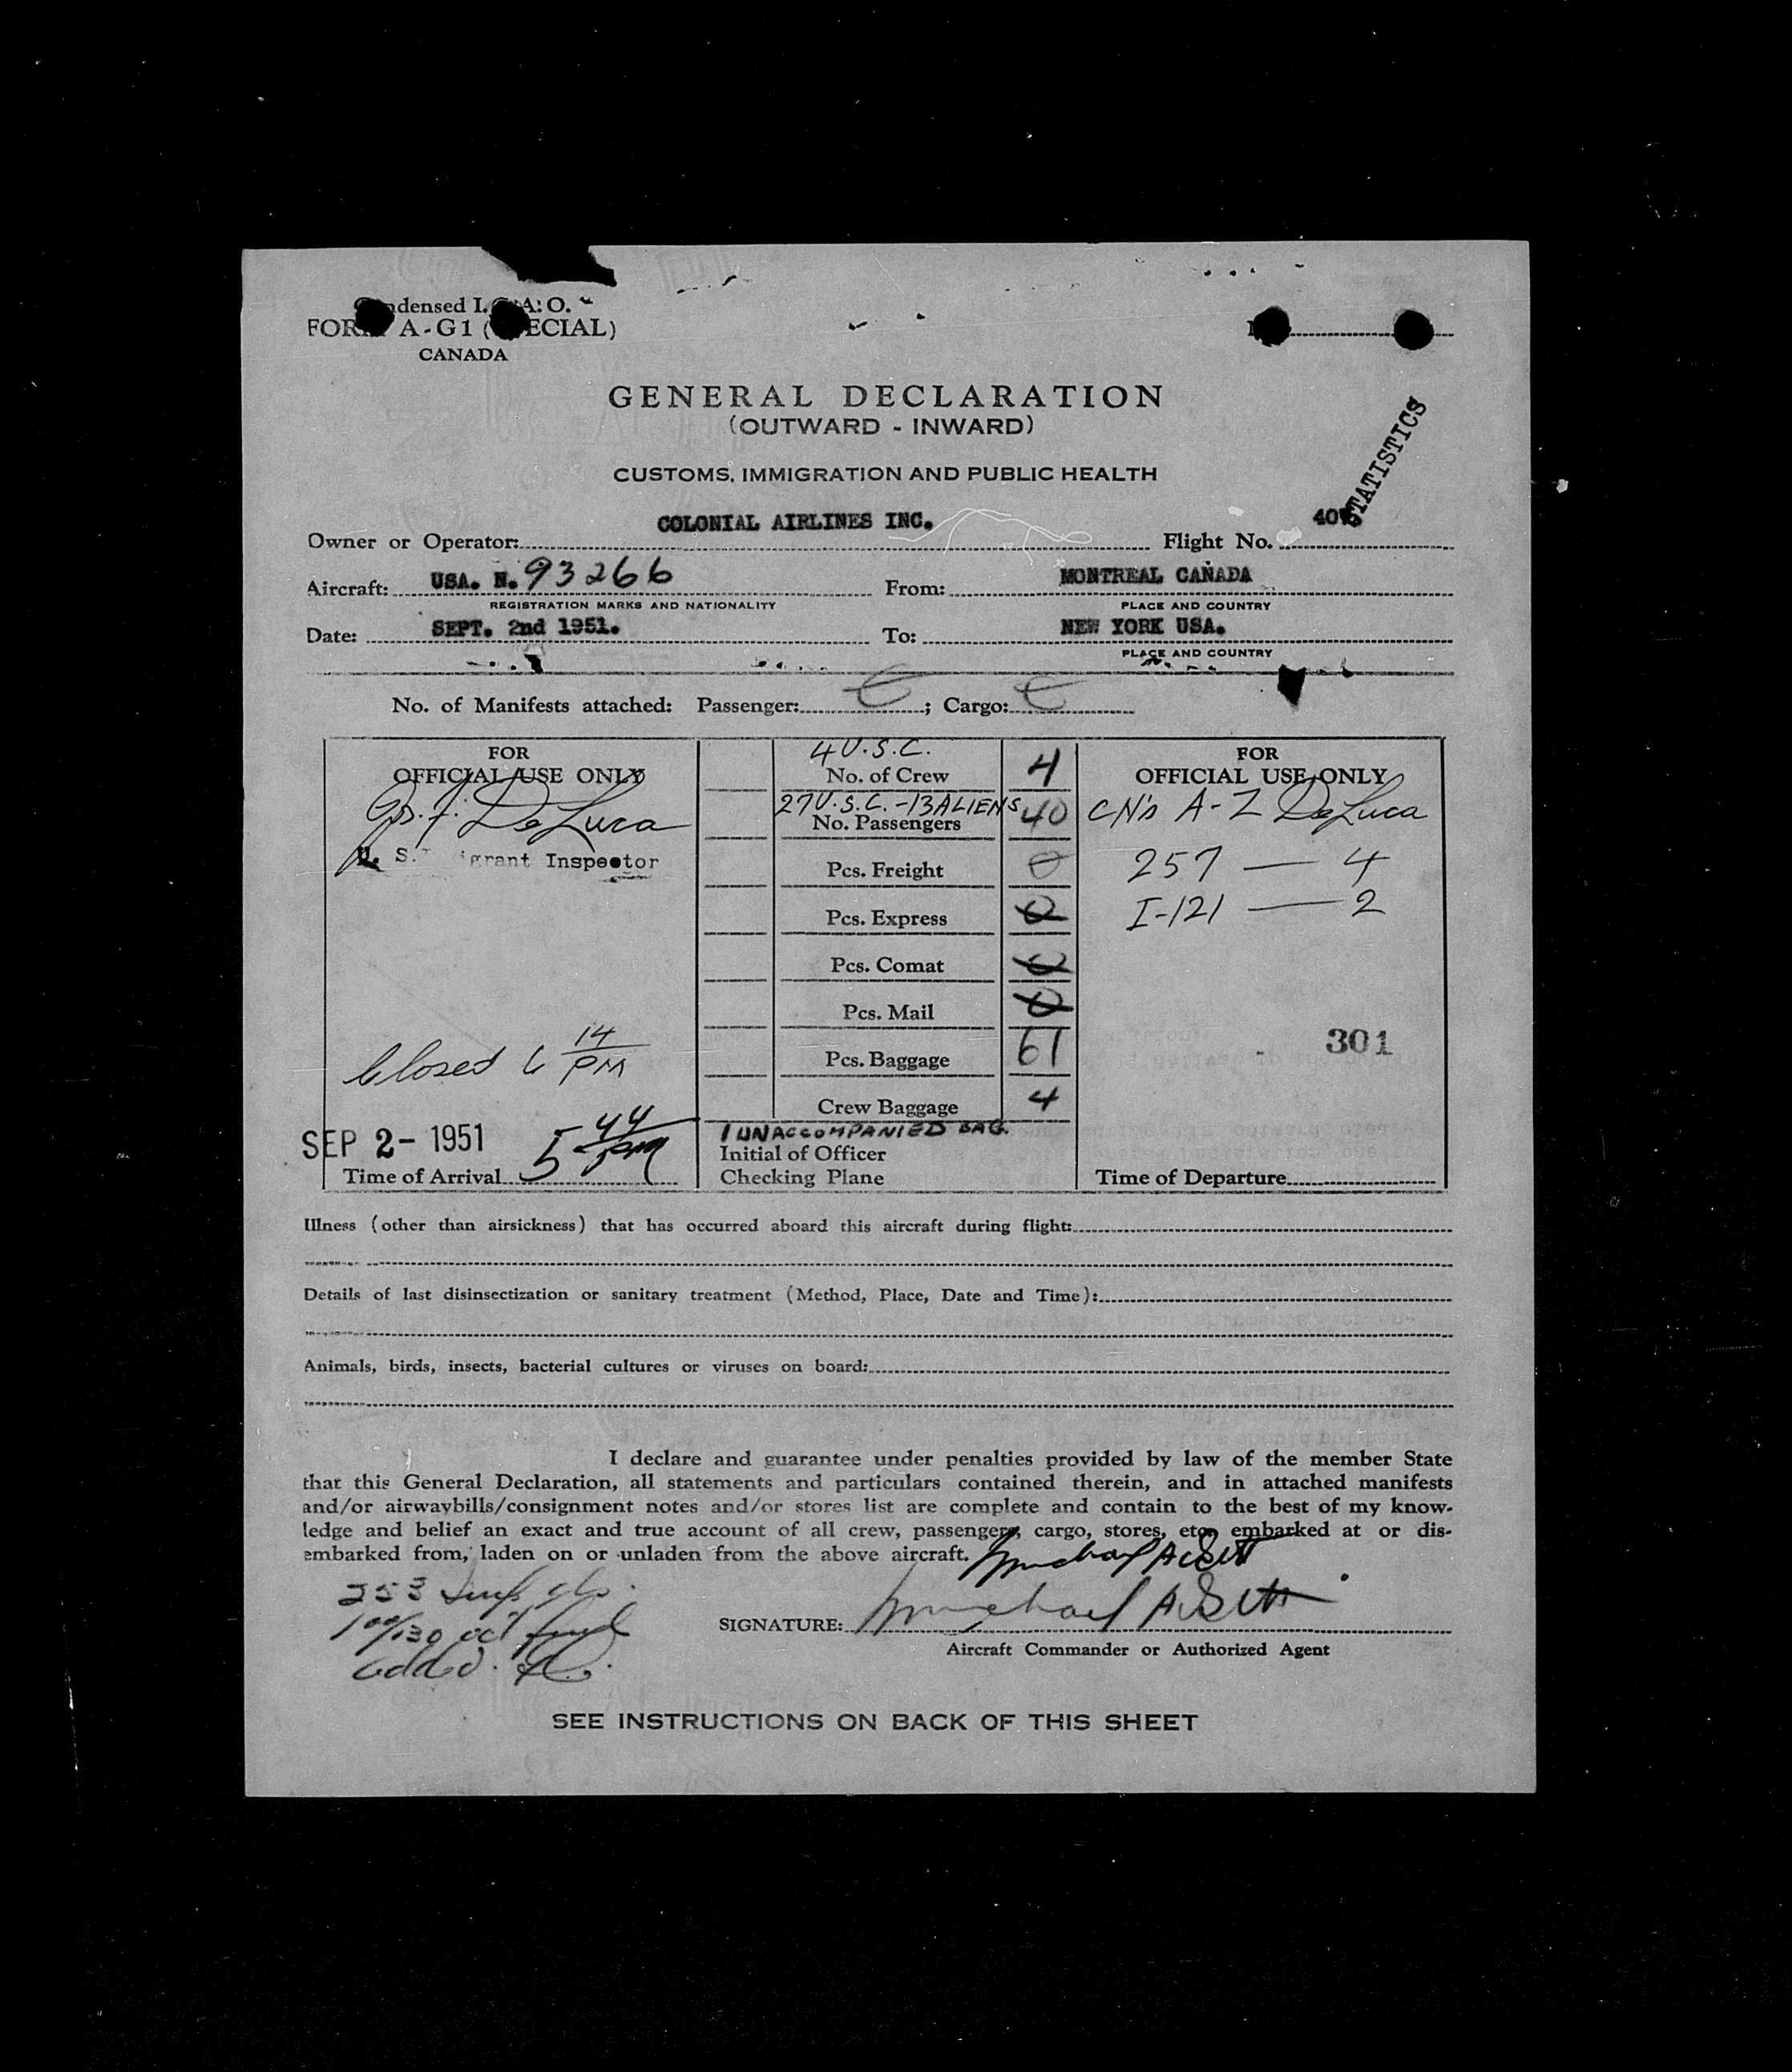 Condensed I. A. O.
FORM A-G1 (SPECIAL)
CANADA
GENERAL DECLARATION
(OUTWARD - INWARD)
CUSTOMS, IMMIGRATION AND PUBLIC HEALTH
STATISTICS
Owner or Operator: COLONIAL AIRLINES INC. Flight No.
Aircraft: USA. N. 93266 From: MONTREAL CANADA
REGISTRATION MARKS AND NATIONALITY PLACE AND COUNTRY
Date: SEPT. 2nd 1951. To: NEW YORK USA.
PLACE AND COUNTRY
No. of Manifests attached: Passenger: ; Cargo:
FOR
OFFICIAL USE ONLY
DeLuca
U. S. Inspector
Closed 6 14 PM
SEP 2- 1951
Time of Arrival 5 44 PM
4 U.S.C.
No. of Crew 4
27 U.S.C. - 13 ALIENS
No. Passengers 40
Pcs. Freight 0
Pcs. Express 0
Pcs. Comat 0
Pcs. Mail 0
Pcs. Baggage 61
Crew Baggage 4
1 UNACCOMPANIED BAG.
Initial of Officer
Checking Plane
FOR
OFFICIAL USE ONLY
CN's A-Z DeLuca
257 — 4
I-121 — 2
301
Time of Departure
Illness (other than airsickness) that has occurred aboard this aircraft during flight:
Details of last disinsectization or sanitary treatment (Method, Place, Date and Time):
Animals, birds, insects, bacterial cultures or viruses on board:
I declare and guarantee under penalties provided by law of the member State
that this General Declaration, all statements and particulars contained therein, and in attached manifests
and/or airwaybills/consignment notes and/or stores list are complete and contain to the best of my know-
ledge and belief an exact and true account of all crew, passengers, cargo, stores, etc, embarked at or dis-
embarked from, laden on or unladen from the above aircraft. Michael
253
100/130 oct fuel
added.
SIGNATURE: Michael
Aircraft Commander or Authorized Agent
SEE INSTRUCTIONS ON BACK OF THIS SHEET